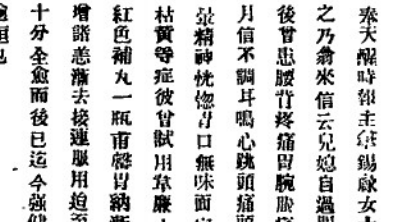 奉天醒時報主筆錫䜣女士
之乃翁來信云兒媳自過服
後曾患腰背疼痛胃腕服痛
月信不調耳鳴心跳頭痛頭
暈精神恍惚胃口無味面
枯黃等症彼曾試用韋廉士
紅色補丸一瓶甫罄胃納漸
增諸恙漸去接連服用迨至
十分全愈而後已迄今強健
逾恒也